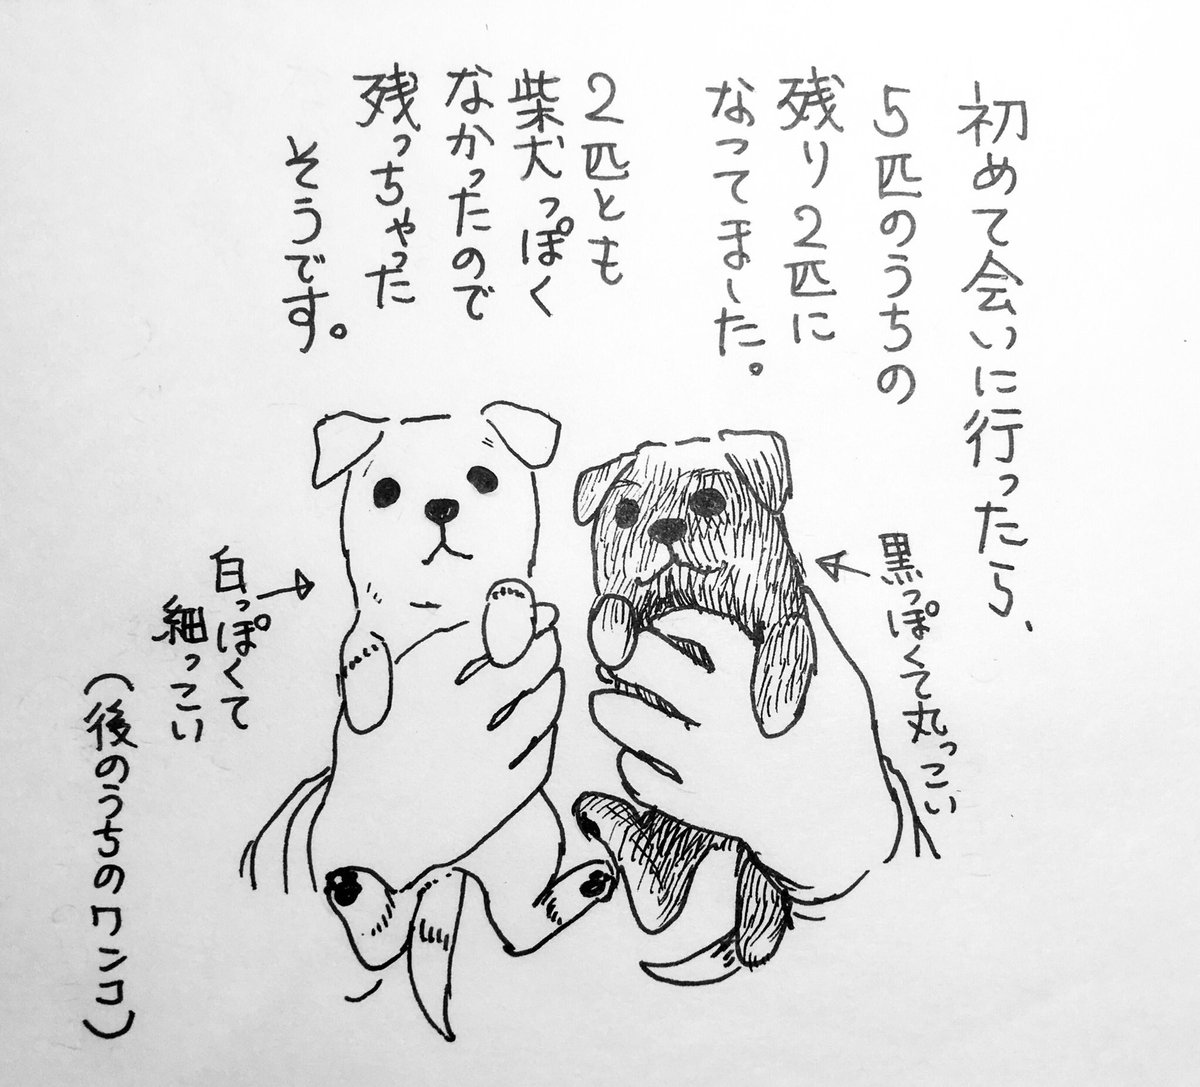 初めて会いに行ったら、
5匹のうちの
残り2匹に
なってました。
2匹とも
柴犬っぽく
なかったので
残っちゃった
そうです。
黒っぽくて丸っこい
白っぽくて
細っこい
(後のうちのワンコ)